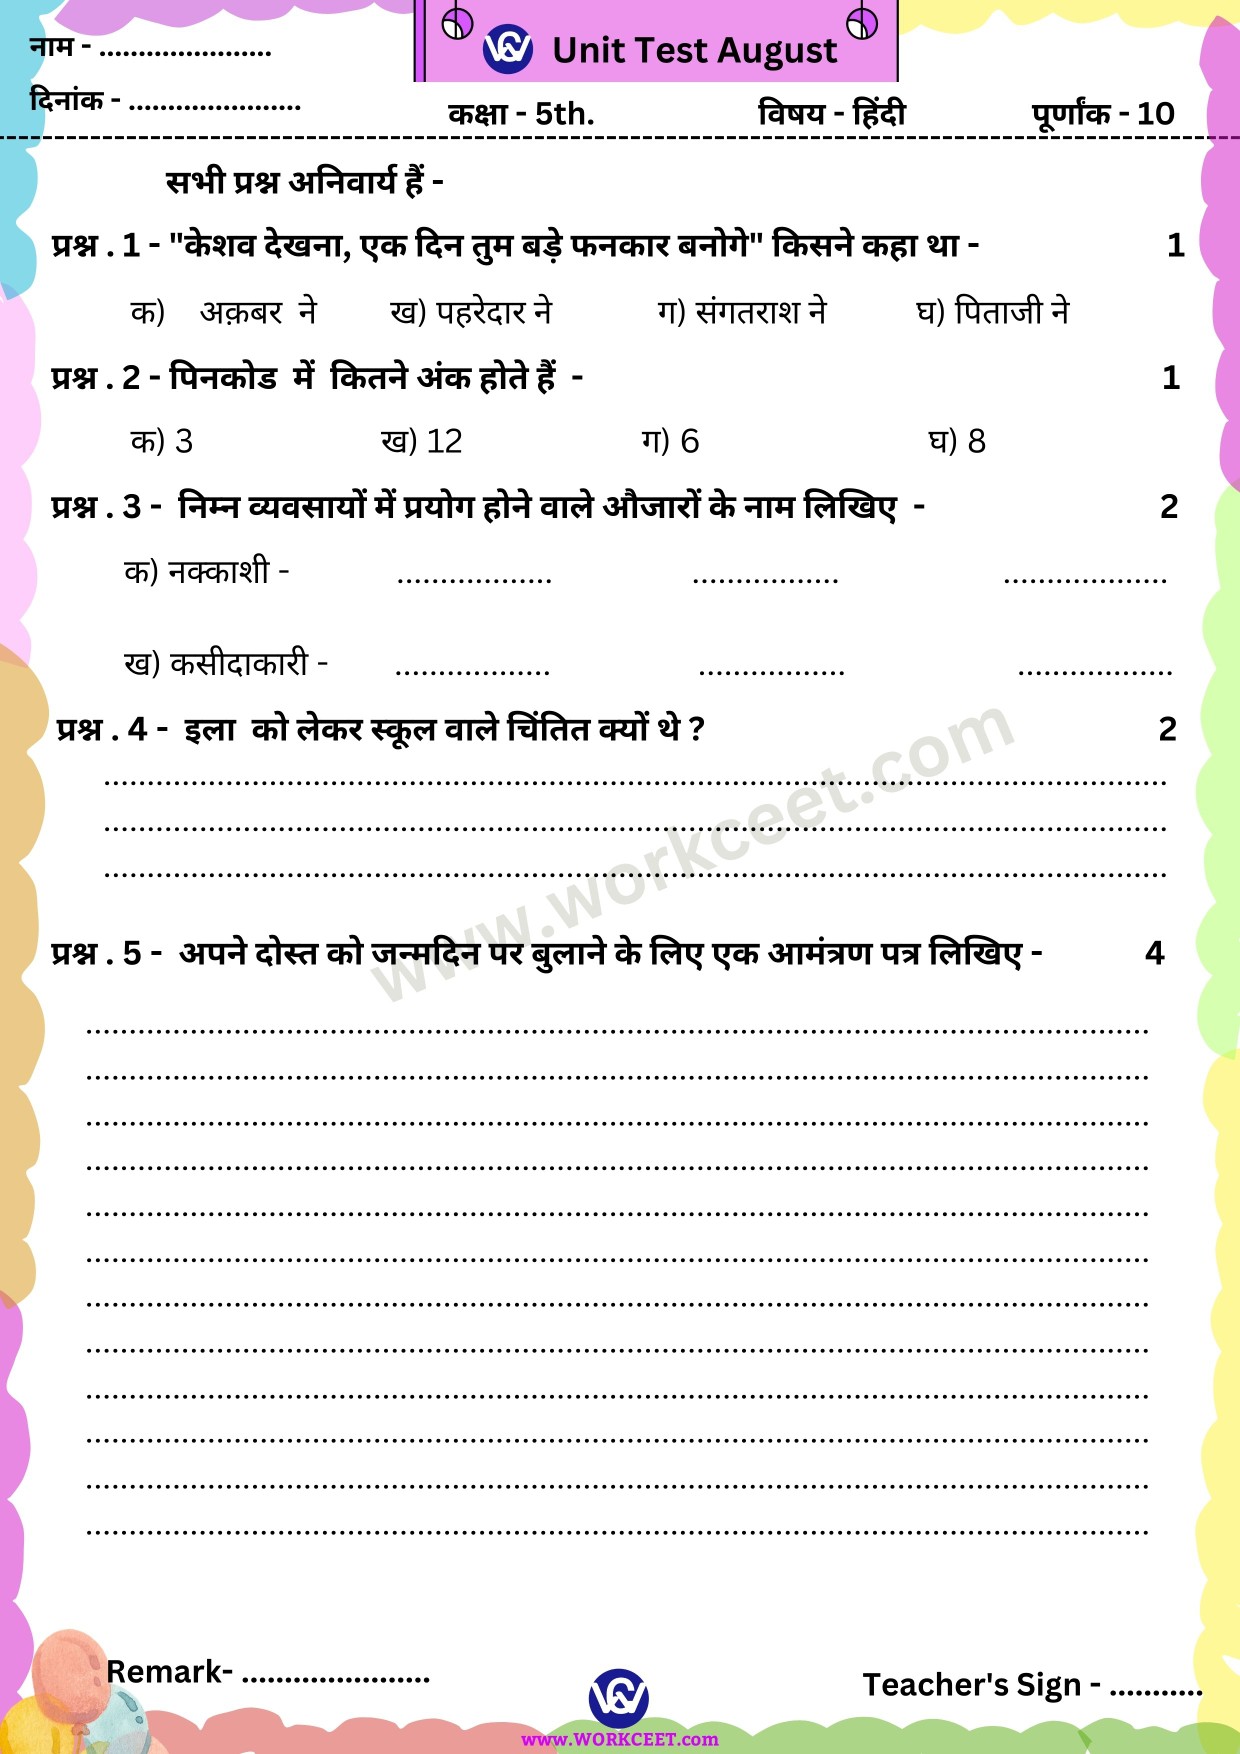 नाम - ......................
Unit Test August
दिनांक - ......................
कक्षा - 5th. विषय - हिंदी पूर्णांक - 10
सभी प्रश्न अनिवार्य हैं -
प्रश्न . 1 - "केशव देखना, एक दिन तुम बड़े फनकार बनोगे" किसने कहा था - 1
क) अक़बर ने ख) पहरेदार ने ग) संगतराश ने घ) पिताजी ने
प्रश्न . 2 - पिनकोड में कितने अंक होते हैं - 1
क) 3 ख) 12 ग) 6 घ) 8
प्रश्न . 3 - निम्न व्यवसायों में प्रयोग होने वाले औजारों के नाम लिखिए - 2
क) नक्काशी - .................. ................. ...................
ख) कसीदाकारी - .................. ................. ..................
प्रश्न . 4 - इला को लेकर स्कूल वाले चिंतित क्यों थे ? 2
www.workceet.com
प्रश्न . 5 - अपने दोस्त को जन्मदिन पर बुलाने के लिए एक आमंत्रण पत्र लिखिए - 4
Remark- ......................
Teacher's Sign - ...........
www.WORKCEET.com